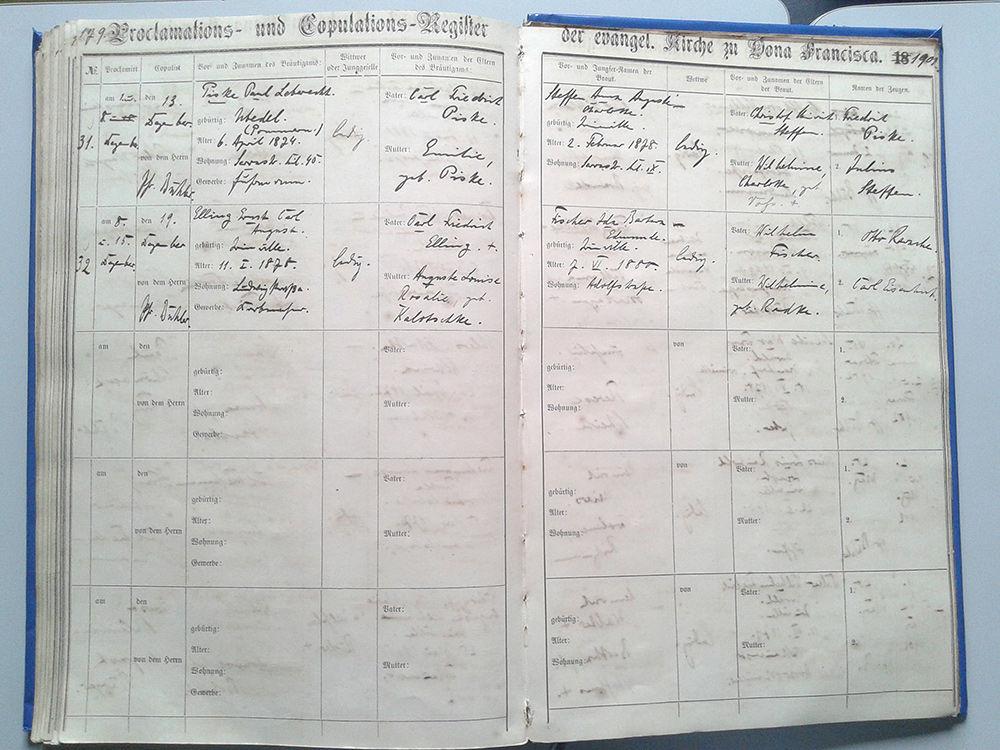 179. Proclamations- und Copulations-Register
der evangel. Kirche zu Dona Francisca. 18 190
№ Proclamirt Copulirt Vor- und Zunamen des Bräutigams: Wittwer oder Junggeselle Vor- und Zunamen der Eltern des Bräutigams:
Vor- und Jungfer-Namen der Braut. Wittwe Vor- und Zunamen der Eltern der Braut. Namen der Zeugen.
31.
am
8.
Dezember
den 13.
Dezember
von dem Herrn
Pf. Bühler
Piske Paul Leberecht.
gebürtig: Wedel.
(Pommern.)
Alter: 6. April 1874.
Wohnung: Serrastr. 40.
Gewerbe:
ledig.
Vater: Carl Friedrich
Piske.
Mutter: Emilie,
geb. Piske.
Steffen Anna Auguste
Charlotte.
gebürtig: Joinville.
Alter: 2. Februar 1878.
Wohnung: Serrastr.
ledig.
Vater: Christof
Steffen.
Mutter: Wilhelmine,
Charlotte, geb.
+
Friedrich
Piske.
2. Julius
Steffen.
32
am 8.
u. 15.
Dezember
den 19.
Dezember
von dem Herrn
Pf. Bühler
Elling Ernst Carl
August.
gebürtig: Joinville.
Alter: 11. I. 1878.
Wohnung:
Gewerbe:
ledig.
Vater: Carl Friedrich
Elling. +
Mutter: Auguste Louise
Rosalie, geb.
Kalotschke.
Fischer Ida Bertha
gebürtig: Joinville.
Alter: 7. VI. 1880.
Wohnung: Adolfstraße.
ledig.
Vater: Wilhelm
Fischer.
Mutter: Wilhelmine,
geb. Radke.
1. Otto
2. Carl
am
den
von dem Herrn
gebürtig:
Alter:
Wohnung:
Gewerbe:
Vater:
Mutter:
gebürtig:
Alter:
Wohnung:
von
Vater:
Mutter:
1.
2.
am
den
von dem Herrn
gebürtig:
Alter:
Wohnung:
Gewerbe:
Vater:
Mutter:
gebürtig:
Alter:
Wohnung:
von
Vater:
Mutter:
1.
2.
am
den
von dem Herrn
gebürtig:
Alter:
Wohnung:
Gewerbe:
Vater:
Mutter:
gebürtig:
Alter:
Wohnung:
von
Vater:
Mutter:
1.
2.